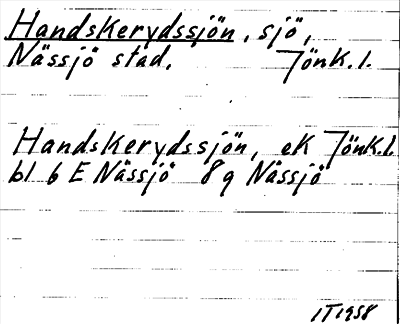 Handskerydssjön, sjö,
Nässjö stad. Jönk. l.
Handskerydssjön, ek Jönk.l.
bl 6 E Nässjö 8 g Nässjö
IT 1958